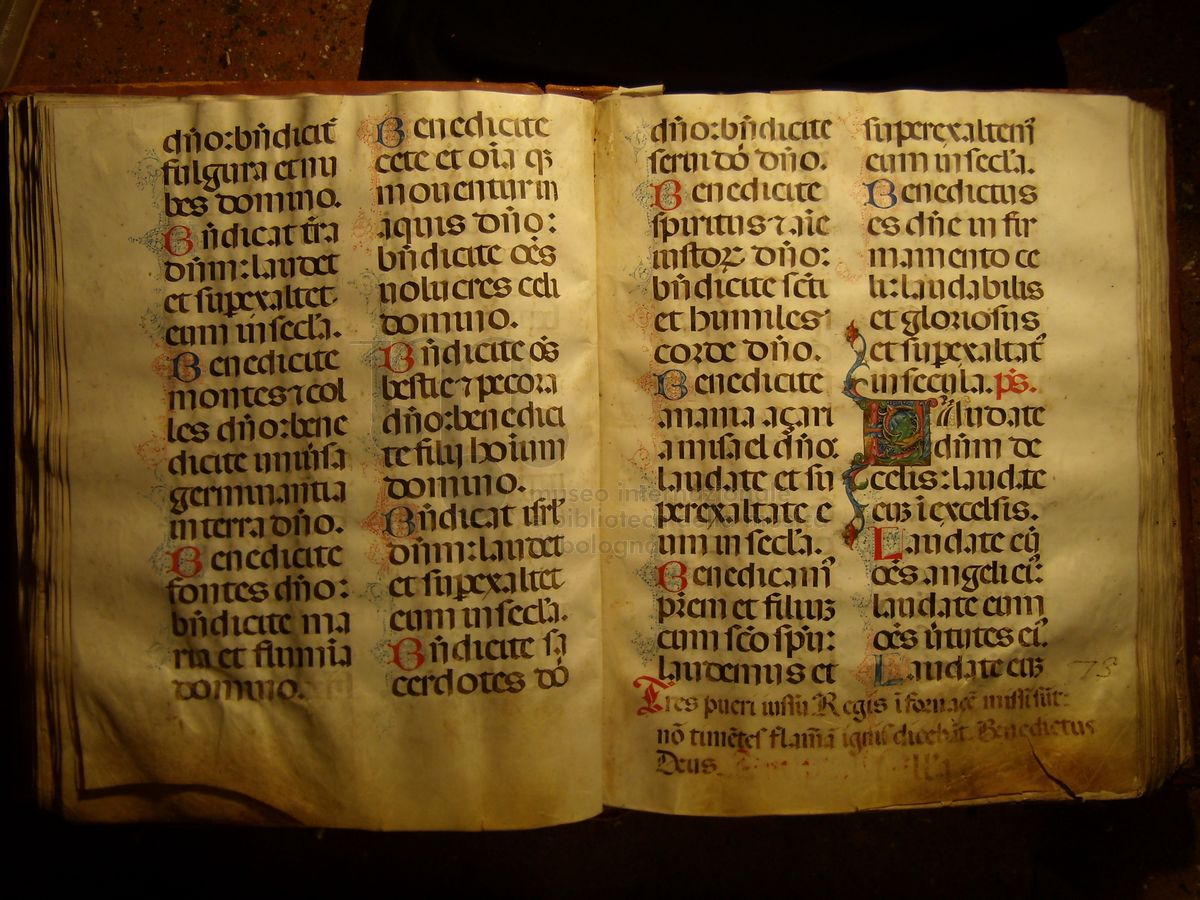 dño: bñdicit̃
fulgura et nu
bes domino.
Bñdicat t̃ra
dñm: laudet
et suꝑexaltet
eum in sec̃la.
Benedicite
montes ⁊ col
les dño: bene
dicite uniũsa
germinantia
in terra dño.
Benedicite
fontes dño:
bñdicite ma
ria et flumĩa
domino.
Benedicite
cete et oĩa q̃
mouentur in
aquis dño:
bñdicite oẽs
uolucres celi
domino.
Bñdicite oẽs
bestie ⁊ pecora
dño: benedici
te filij hoĩum
domino.
Bñdicat isrl̃
dñm: laudet
et suꝑexaltet
eum in sec̃la.
Bñdicite sa
cerdotes dõ
dño: bñdicite
serui dõ dño.
Benedicite
spiritus ⁊ aĩe
iustoꝝ dño:
bñdicite sc̃ti
et humiles
corde dño.
Benedicite
anania açari
a misael dño:
laudate et su
perexaltate e
um in sec̃la.
Benedicam᷒
pr̃em et filiuꝫ
cum sc̃o spũ:
laudemus et
superexaltem᷒
eum in sec̃la.
Benedictus
es dñe in fir
mamento ce
li: laudabilis
et gloriosus
et suꝑexaltat᷒
in secula. p̃s.
Laudate
dñm de
celis: laudate
euꝫ ĩ excelsis.
Laudate eũ
oẽs angeli ei᷒:
laudate eum
oẽs ũtutes ei᷒.
Laudate euꝫ
73
Tres pueri iussu Regis ĩ fornacẽ missi sũt:
nõ timẽtes flamã ignis dicebãt. Benedictus
Deus
museo internazionale
biblioteca
bologna